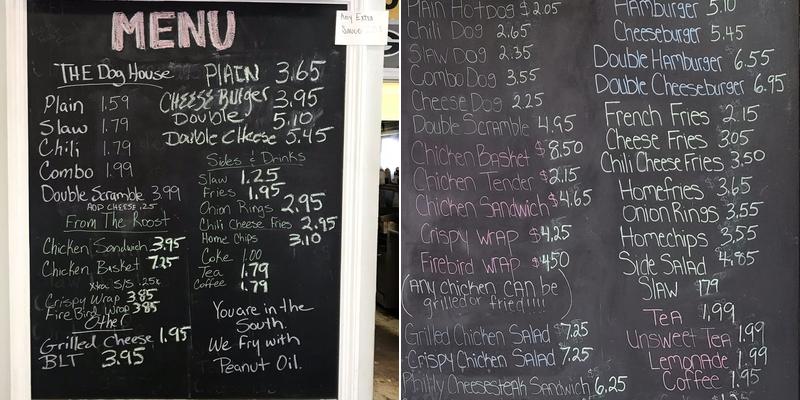 MENU
Any Extra
Sauce
THE Dog House
Plain 1.59
Slaw 1.79
Chili 1.79
Combo 1.99
Double Scramble 3.99
ADD CHEESE .25
From The Roost
Chicken Sandwich 3.95
Chicken Basket 7.25
Xtra S/S .25x
Crispy Wrap 3.85
Fire Bird Wrap 3.85
Other
Grilled Cheese 1.95
BLT 3.95
PLAIN 3.65
CHEESE Burger 3.95
Double 5.10
Double CHeese 5.45
Sides & Drinks
Slaw 1.25
Fries 1.95
Onion Rings 2.95
Chili Cheese Fries 2.95
Home Chips 3.10
Coke 1.00
Tea 1.79
Coffee 1.79
You are in the
South.
We Fry with
Peanut Oil.
Plain HotDog $2.05
Chili Dog 2.65
Slaw Dog 2.35
Combo Dog 3.55
Cheese Dog 2.25
Double Scramble 4.95
Chicken Basket $8.50
Chicken Tender $2.15
Chicken Sandwich $4.65
Crispy Wrap $4.25
Firebird Wrap $4.50
(Any chicken can be
grilled or fried!!!!)
Grilled Chicken Salad $7.25
Crispy Chicken Salad 7.25
Philly Cheesesteak Sandwich 6.25
Hamburger 5.10
Cheeseburger 5.45
Double Hamburger 6.55
Double Cheeseburger 6.95
French Fries 2.15
Cheese Fries 3.05
Chili Cheese Fries 3.50
Homefries 3.65
Onion Rings 3.55
Homechips 3.55
Side Salad 4.85
Slaw 1.79
Tea 1.99
Unsweet Tea 1.99
Lemonade 1.99
Coffee 1.95